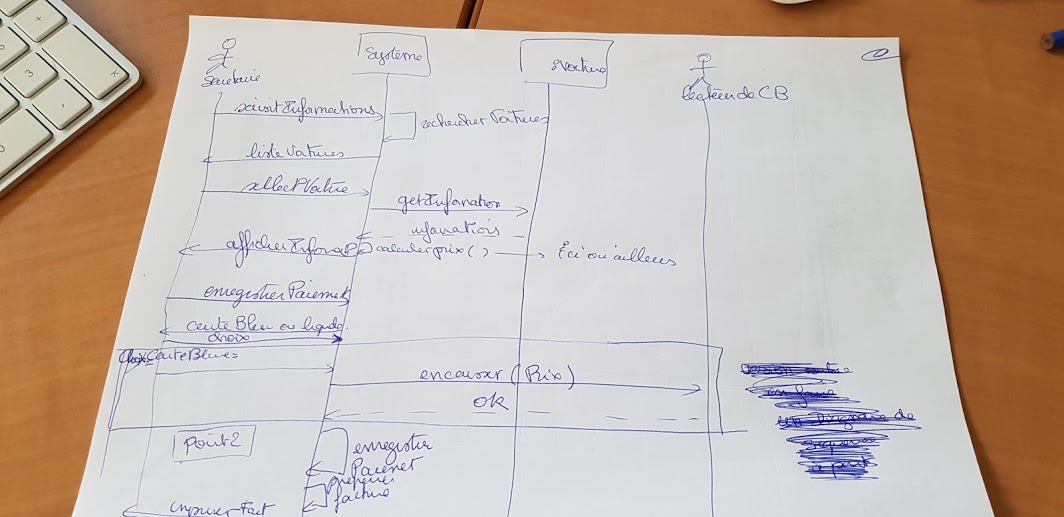 Système
:Voiture
Secretaire
lecteur de CB
saisit Informations
rechercher Voitures
liste Voitures
select Voiture
get Information
informations
afficher Inform
calculer prix ( )
Ici ou ailleurs
enregistrer Paiement
carte Bleu ou liquide
choix
Carte Blue =
encaisser (Prix)
OK
Point 2
enregistrer
Paiement
préparer
facture
imprimer Fact
3